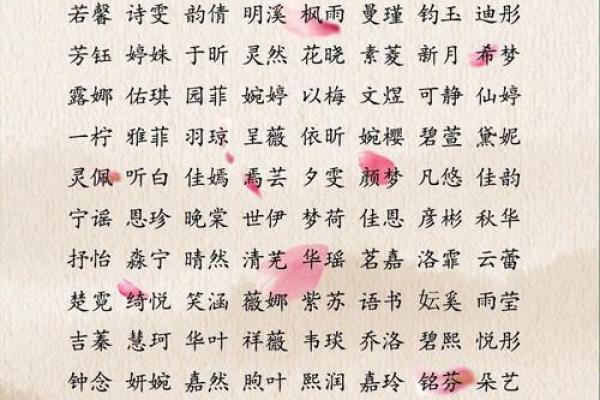 若馨 诗雯 韵倩 明溪 枫雨 曼瑾 钧玉 迪彤
芳钰 婷姝 于昕 灵然 花晓 素菱 新月 希梦
露娜 佑琪 园菲 婉婷 以梅 文煜 可静 仙婷
一柠 雅菲 羽琼 呈薇 依昕 婉樱 碧萱 黛妮
灵佩 听白 佳嫣 焉芸 夕雯 颜梦 凡悠 佳韵
宁谣 恩珍 晚棠 世伊 梦荷 佳恩 彦彬 秋华
抒怡 淼宁 晴然 清芜 华瑶 茗嘉 洛霏 云蕾
楚霓 绮悦 笑涵 薇娜 紫苏 语书 妘奚 雨莹
吉蓁 慧珂 华叶 祥薇 韦琰 乔洛 碧熙 悦彤
钟念 妍婉 嘉然 煦叶 熙润 嘉玲 铭芬 朵艺